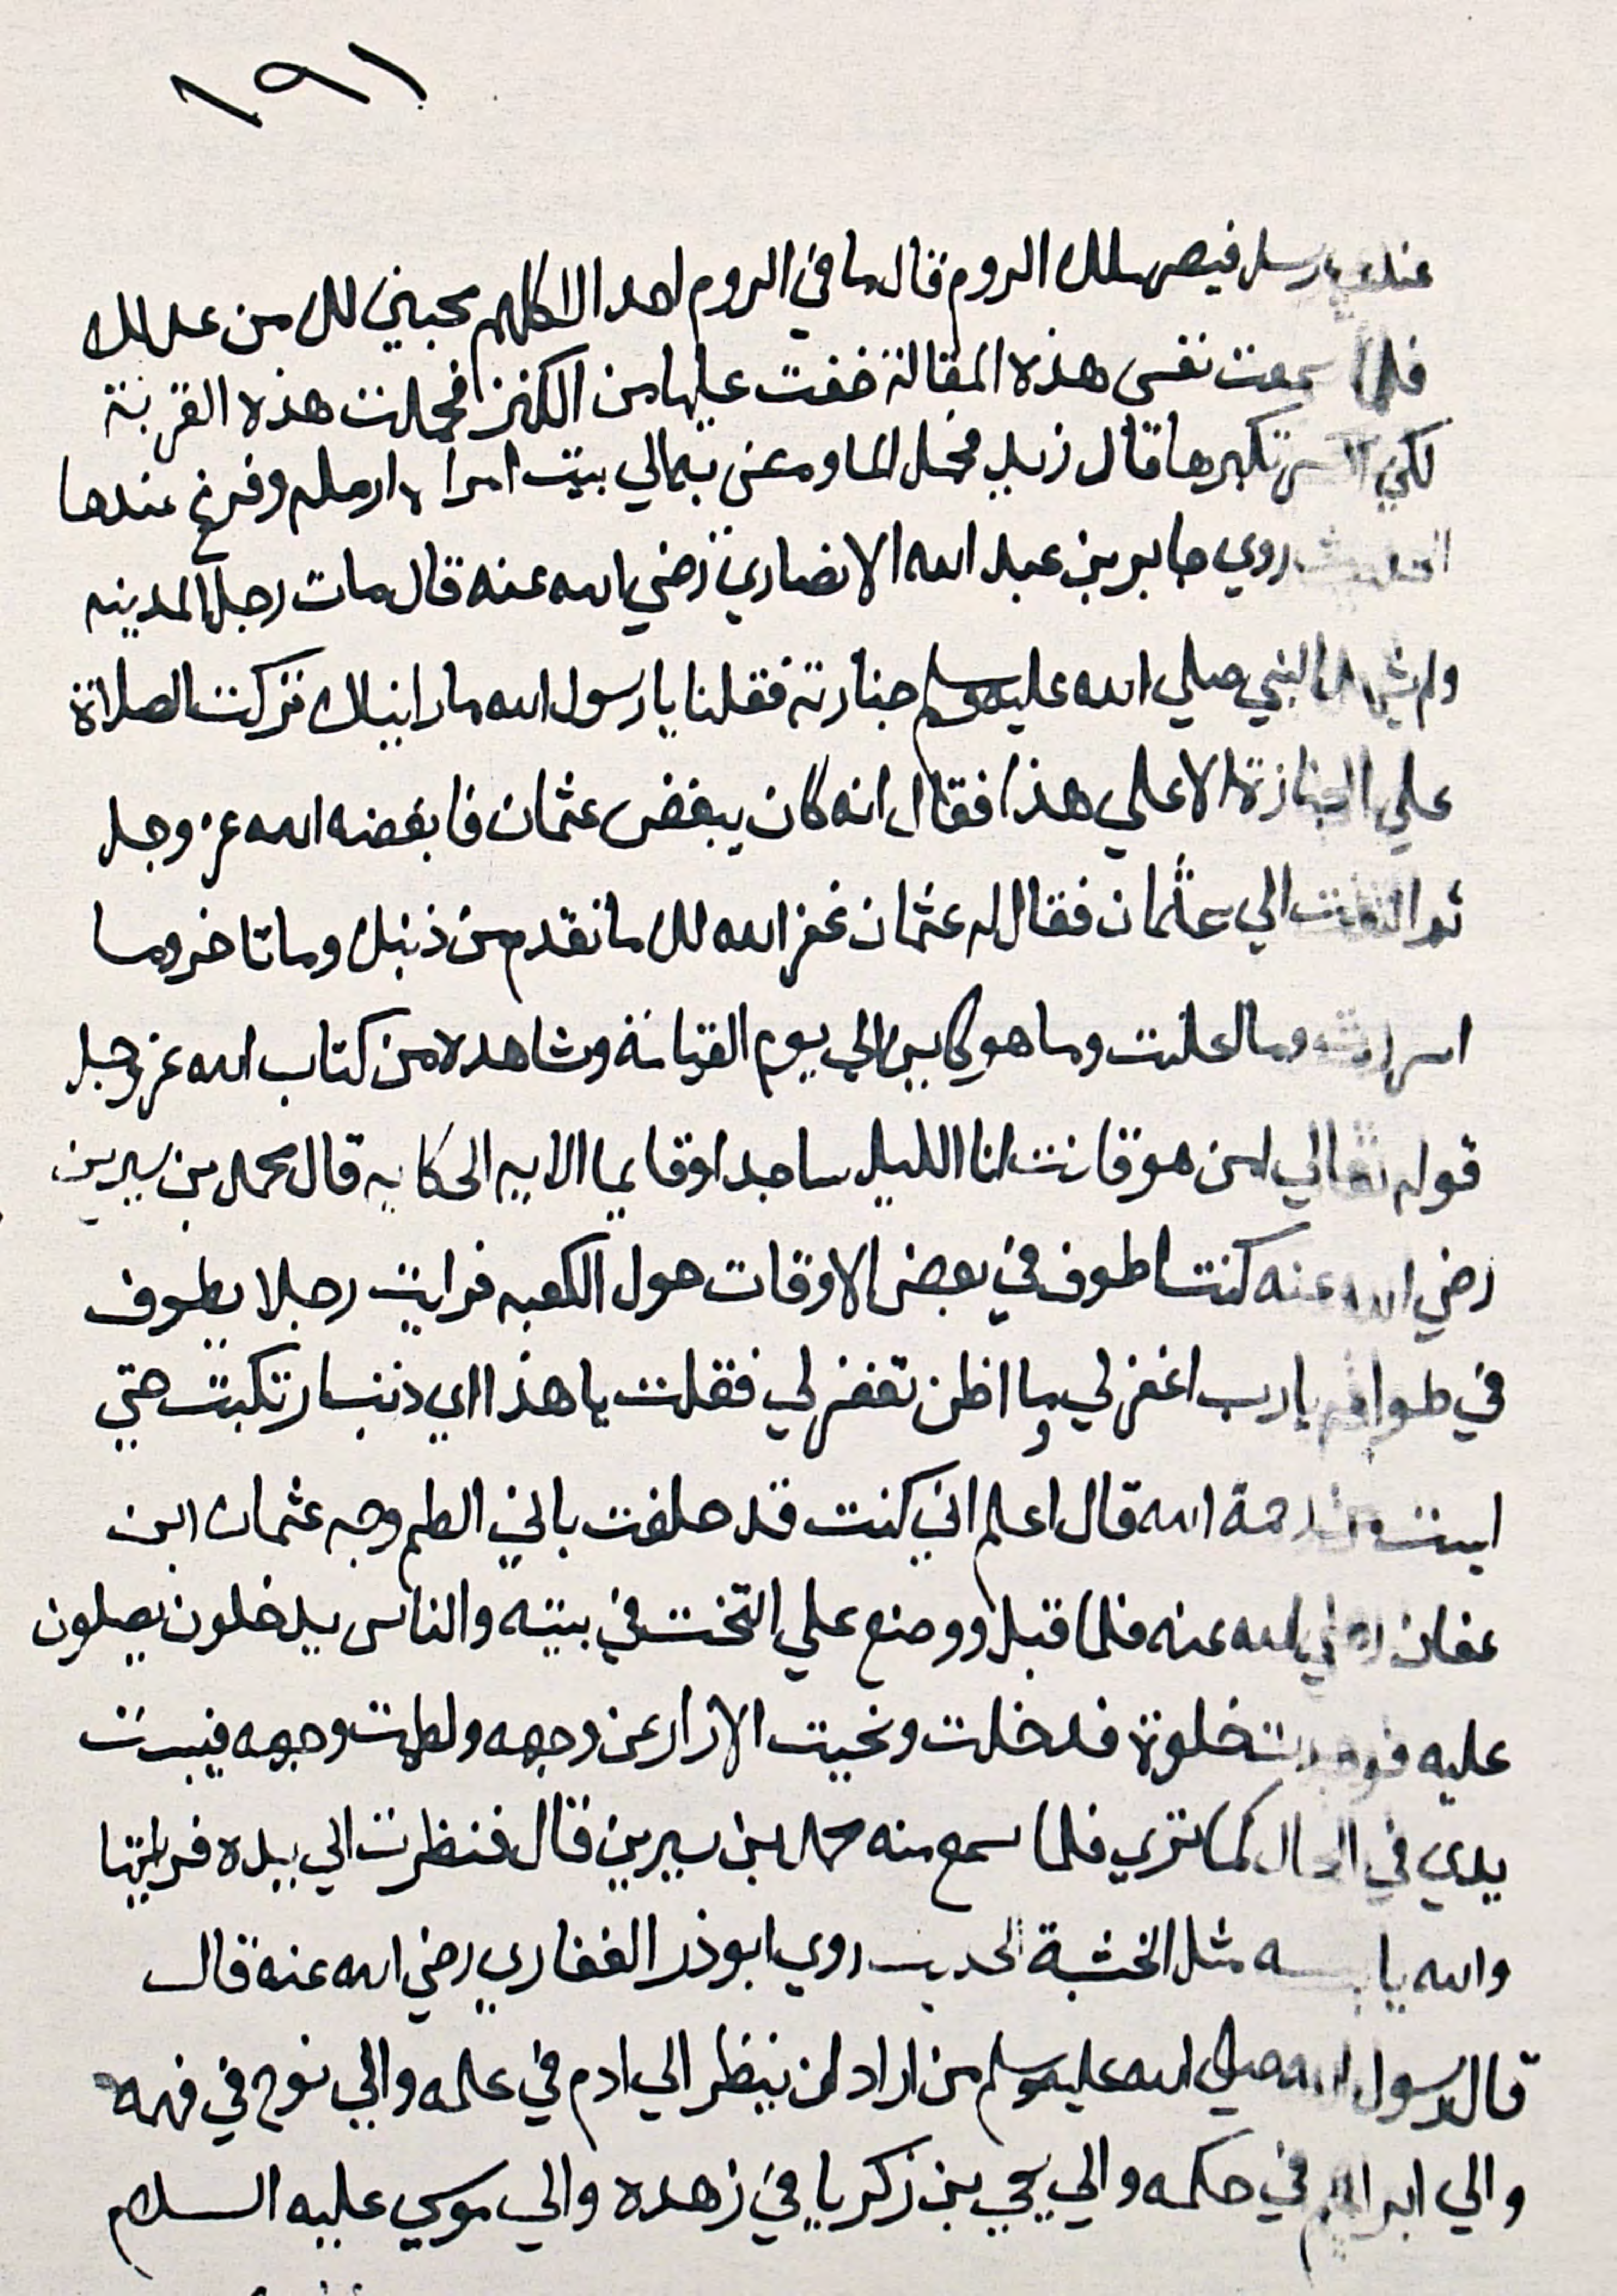 ١٩١
رسل قيصر ملك الروم قال ما في الروم احد الا كلهم محبين لك من عدلك
فلما سمعت نفسي هذه المقالة خفت عليها من الكفر فحملت هذه القربة
لكي تكبرها قال زيد فحمل الما ومعني بمالي بيت امراه ارمله وفرغ عندها
روي جابر بن عبد الله الانصاري رضي الله عنه قال مات رجل المدينه
ولم النبي صلي الله عليه وسلم جنازته فقلنا يا رسول الله ما رايناك تركت الصلاة
علي الجنازة الا علي هذا فقال انه كان يبغض عثمان فابغضه الله عز وجل
ثم التفت الي عثمان فقال له عثمان غفر الله لك ما تقدم من ذنبك وما تاخر وما
اسررت وما اعلنت وما هو كاين الي يوم القيامة وشاهده من كتاب الله عز وجل
قوله تعالي امن هو قانت انا الليل ساجدا وقايما الايه الحكايه قال محمد بن سيرين
رضي الله عنه كنت اطوف في بعض الاوقات حول الكعبه فرايت رجلا يطوف
في طوافه يا رب اغفر لي وما اظن تغفر لي فقلت يا هذا اي ذنب ارتكبت حتي
ايست من رحمة الله قال اعلم اني كنت قد حلفت باني الطم وجه عثمان ابن
عفان رضي الله عنه فلما قتل ووضع علي التخت في بيته والناس يدخلون يصلون
عليه فوجدت خلوة فدخلت ونحيت الازار عن وجهه ولطمت وجهه فيبست
يدي في الحال كما تري فلما سمع منه محمد بن سيرين قال فنظرت الي يده فرايتها
والله يابسه مثل الخشبة الحديث روي ابو ذر الغفاري رضي الله عنه قال
قال رسول الله صلي الله عليه وسلم من اراد ان ينظر الي ادم في علمه والي نوح في فهمه
والي ابراهيم في حكمه والي يحيي بن زكريا في زهده والي موسي عليه السلام